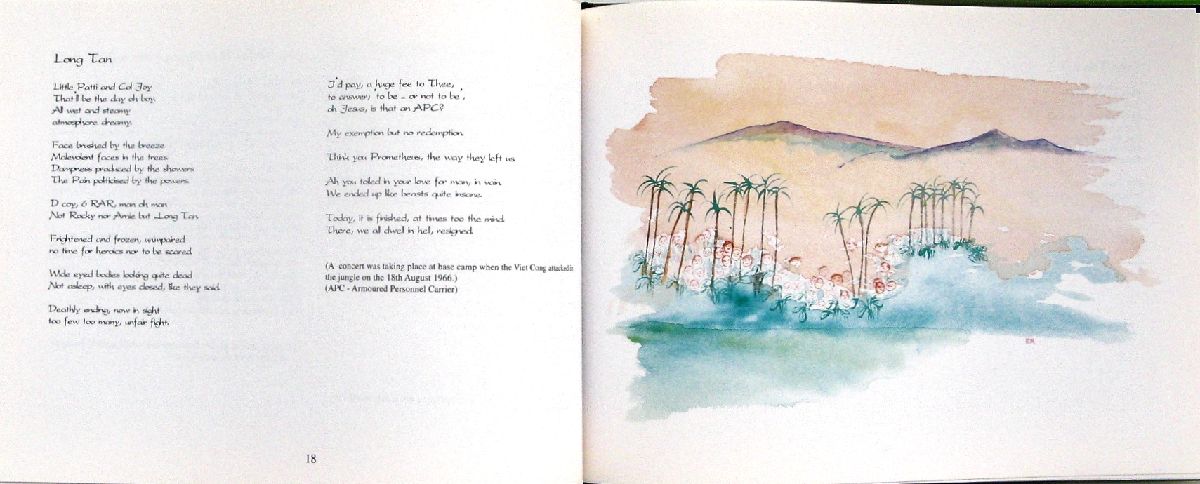 Long Tan
Little Patti and Col Joy
That'll be the day oh boy.
All wet and steamy
atmosphere dreamy.
Face brushed by the breeze
Malevolent faces in the trees
Dampness produced by the showers
The Pain politicised by the powers.
D coy, 6 RAR, man oh man
Not Rocky nor Arnie but -Long Tan.
Frightened and frozen, unimpaired
no time for heroics nor to be scared.
Wide eyed bodies looking quite dead
Not asleep, with eyes closed, like they said.
Deathly ending, now in sight
too few too many, unfair fight.
I'd pay, a huge fee to Thee,
to answer, 'to be - or not to be',
oh Jesus, is that an APC?
My exemption but no redemption.
Think you Prometheus, the way they left us
Ah you toled in your love for man, in vain.
We ended up like beasts quite insane.
Today, it is finished, at times too the mind.
There, we all dwel in hell, resigned.
(A concert was taking place at base camp when the Viet Cong attacked in
the jungle on the 18th August 1966.)
(APC - Armoured Personnel Carrier)
18